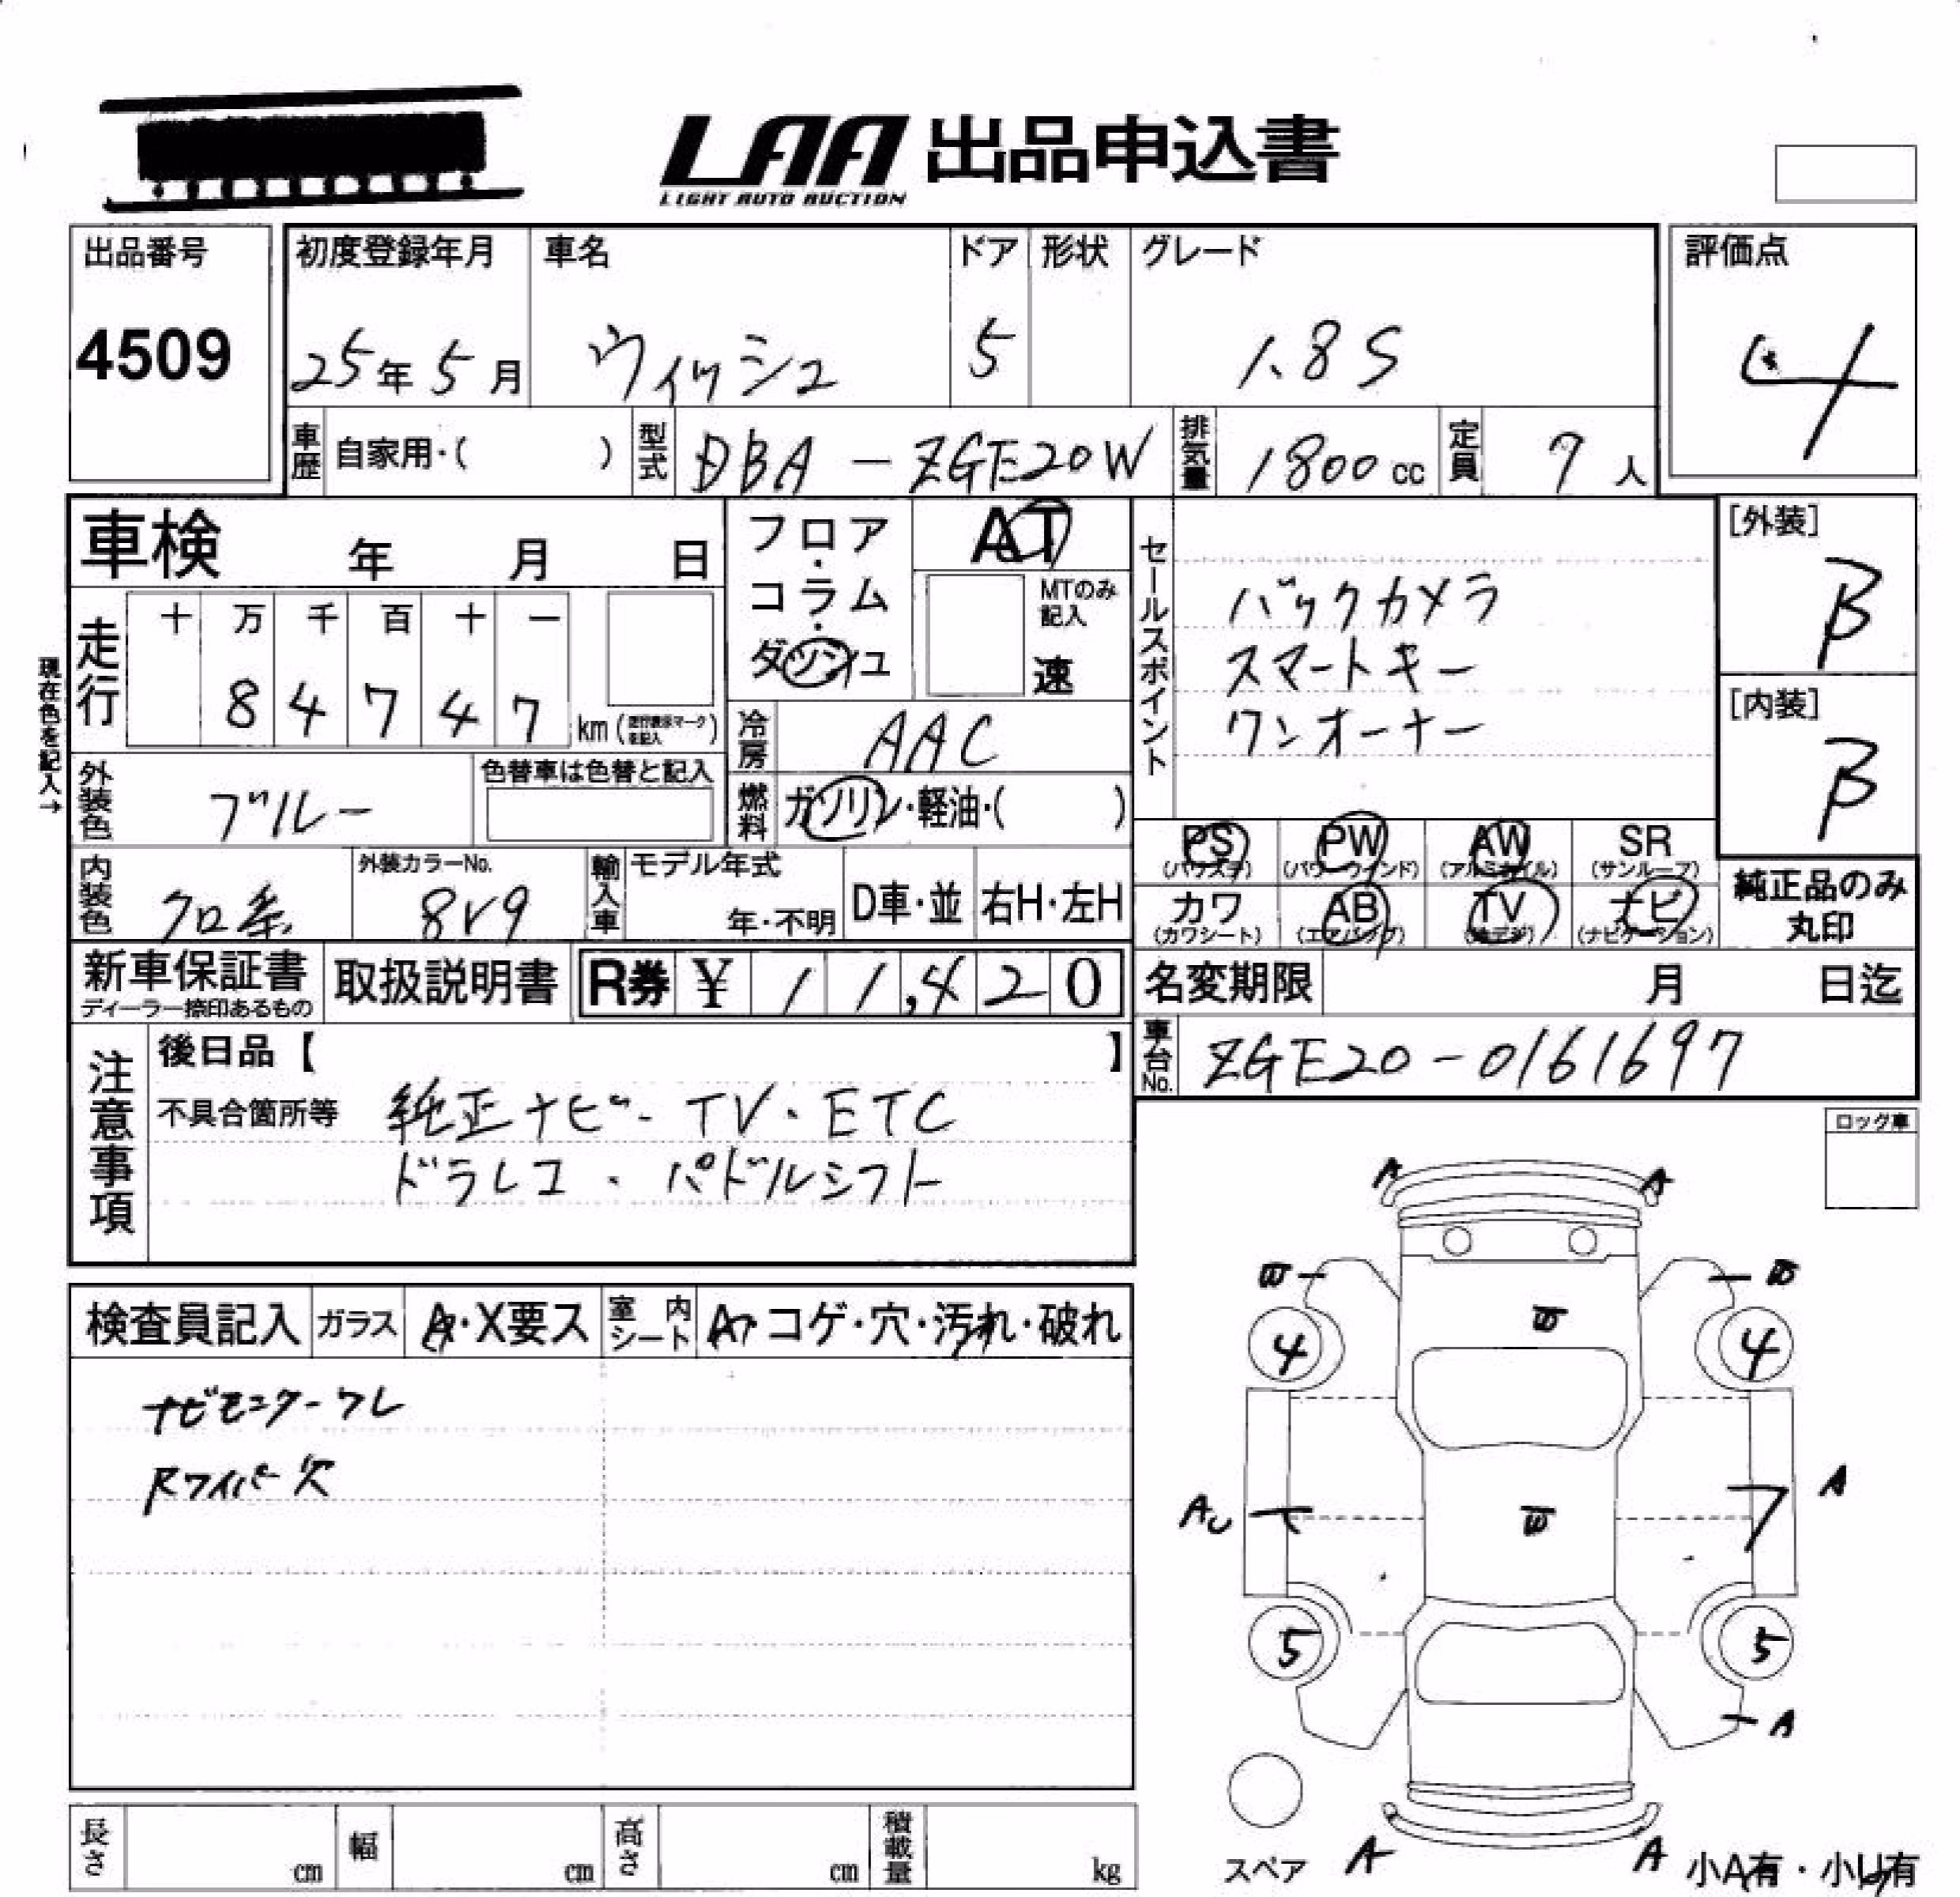 LAA 出品申込書
LIGHT AUTO AUCTION
出品番号
4509
初度登録年月
25年5月
車名
ウィッシュ
ドア
5
形状
グレード
1.8S
評価点
4
車歴 自家用・( )
型式 DBA-ZGE20W
排気量 1800cc
定員 7人
車検 年 月 日
フロア・コラム・ダッシュ
AT
MTのみ記入
速
セールスポイント
バックカメラ
スマートキー
ワンオーナー
[外装]
B
[内装]
B
現在色を記入→
走行
十 万 千 百 十 一
8 4 7 4 7 km(走行表示マークを記入)
冷房 AAC
外装色 ブルー
色替車は色替と記入
燃料 ガソリン・軽油・( )
PS (パワステ)
PW (パワーウィンド)
AW (アルミホイル)
SR (サンルーフ)
カワ (カワシート)
AB (エアバッグ)
TV (地デジ)
ナビ (ナビゲーション)
純正品のみ丸印
内装色 クロ系
外装カラーNo.
8V9
輸入車 モデル年式
年・不明
D車・並
右H・左H
新車保証書
ディーラー捺印あるもの
取扱説明書
R券 ¥ 11,420
名変期限 月 日迄
車台No. ZGE20-0161697
注意事項
後日品【 】
不具合箇所等 純正ナビ・TV・ETC
ドラレコ・パドルシフト
ロック車
検査員記入 ガラス A・X要ス 室内シート A コゲ・穴・汚れ・破れ
ナビモニターワレ
Rワイパー欠
A A
W W
W
4 4
AU A
W
5 5
A
A A
スペア
小A有・小U有
長さ cm
幅 cm
高さ cm
積載量 kg